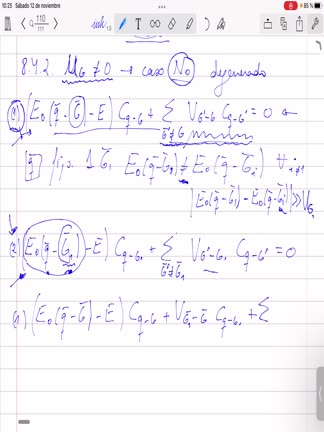 10:25 Sábado 12 de noviembre 85 %
110
111
8.4.2. U_G ≠ 0 → caso No degenerado
(1) (E₀(q̄ - Ḡ) - E) C_{q-G} + Σ_{Ḡ'≠Ḡ} V_{G'-G} C_{q-G'} = 0
[q̄] fijo. 1 Ḡ₁ E₀(q̄-Ḡ₁) ≠ E₀(q̄-Ḡᵢ) ∀ i≠1
|E₀(q̄-Ḡ₁) - E₀(q̄-Ḡᵢ)| ≫ V_{G₁}
(2) (E₀(q̄-Ḡ₁)-E) C_{q-G₁} + Σ_{Ḡ'≠Ḡ₁} V_{G'-G₁} C_{q-G'} = 0
(1) (E₀(q̄-Ḡ)-E) C_{q-G} + V_{Ḡ₁-Ḡ} C_{q-G₁} + Σ